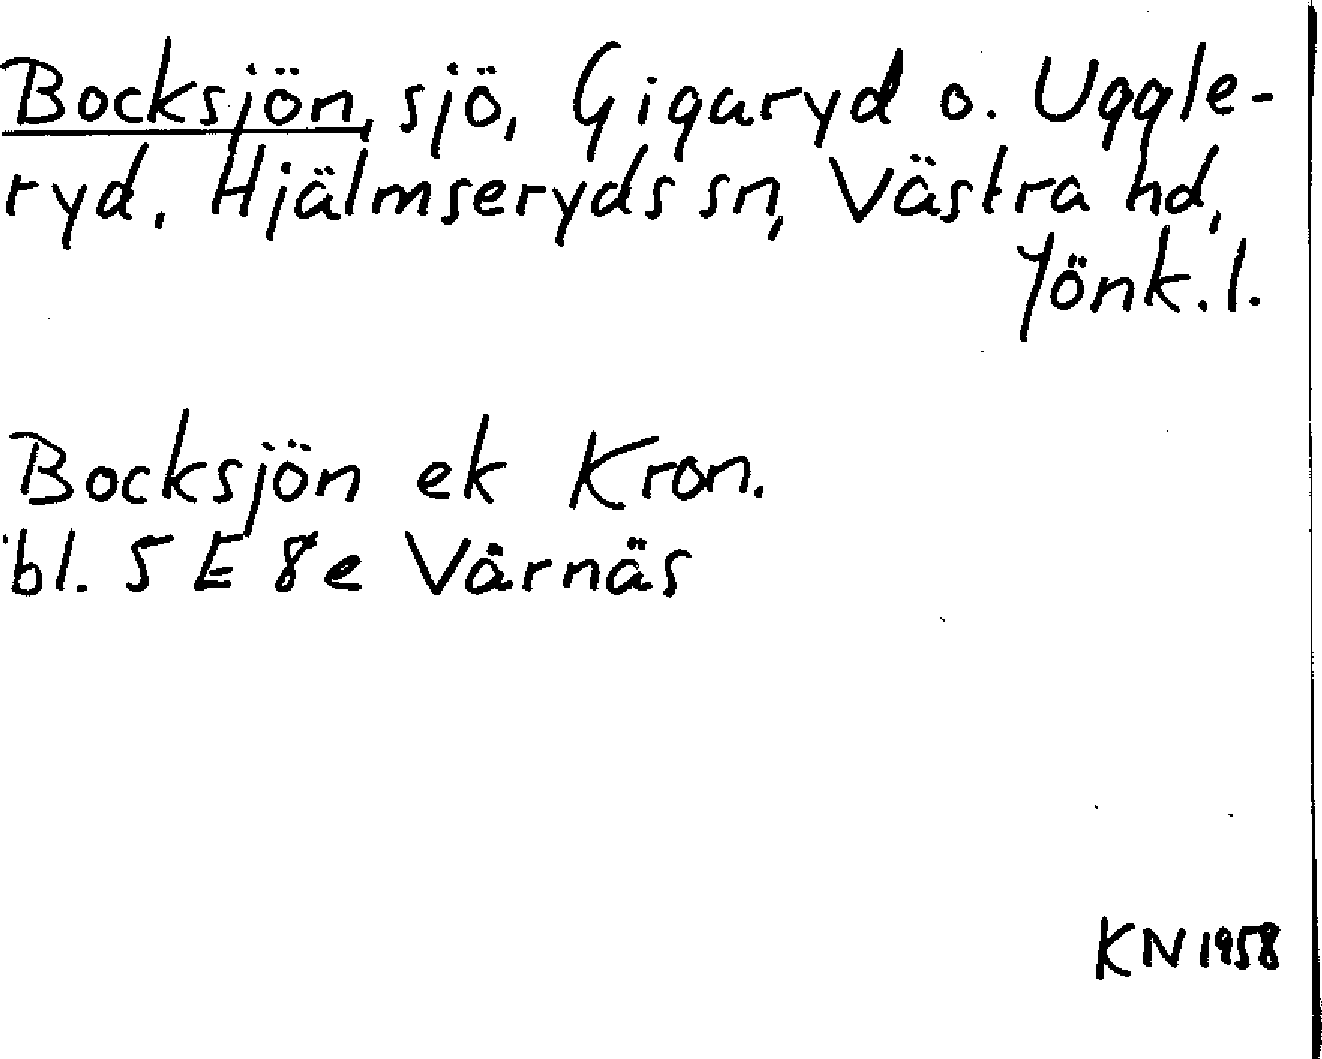 Bocksjön, sjö, Gigaryd o. Uggle-
ryd. Hjälmseryds sn, Västra hd,
Jönk. l.
Bocksjön ek Kron.
bl. 5 E 8 e Värnäs
KN 1958